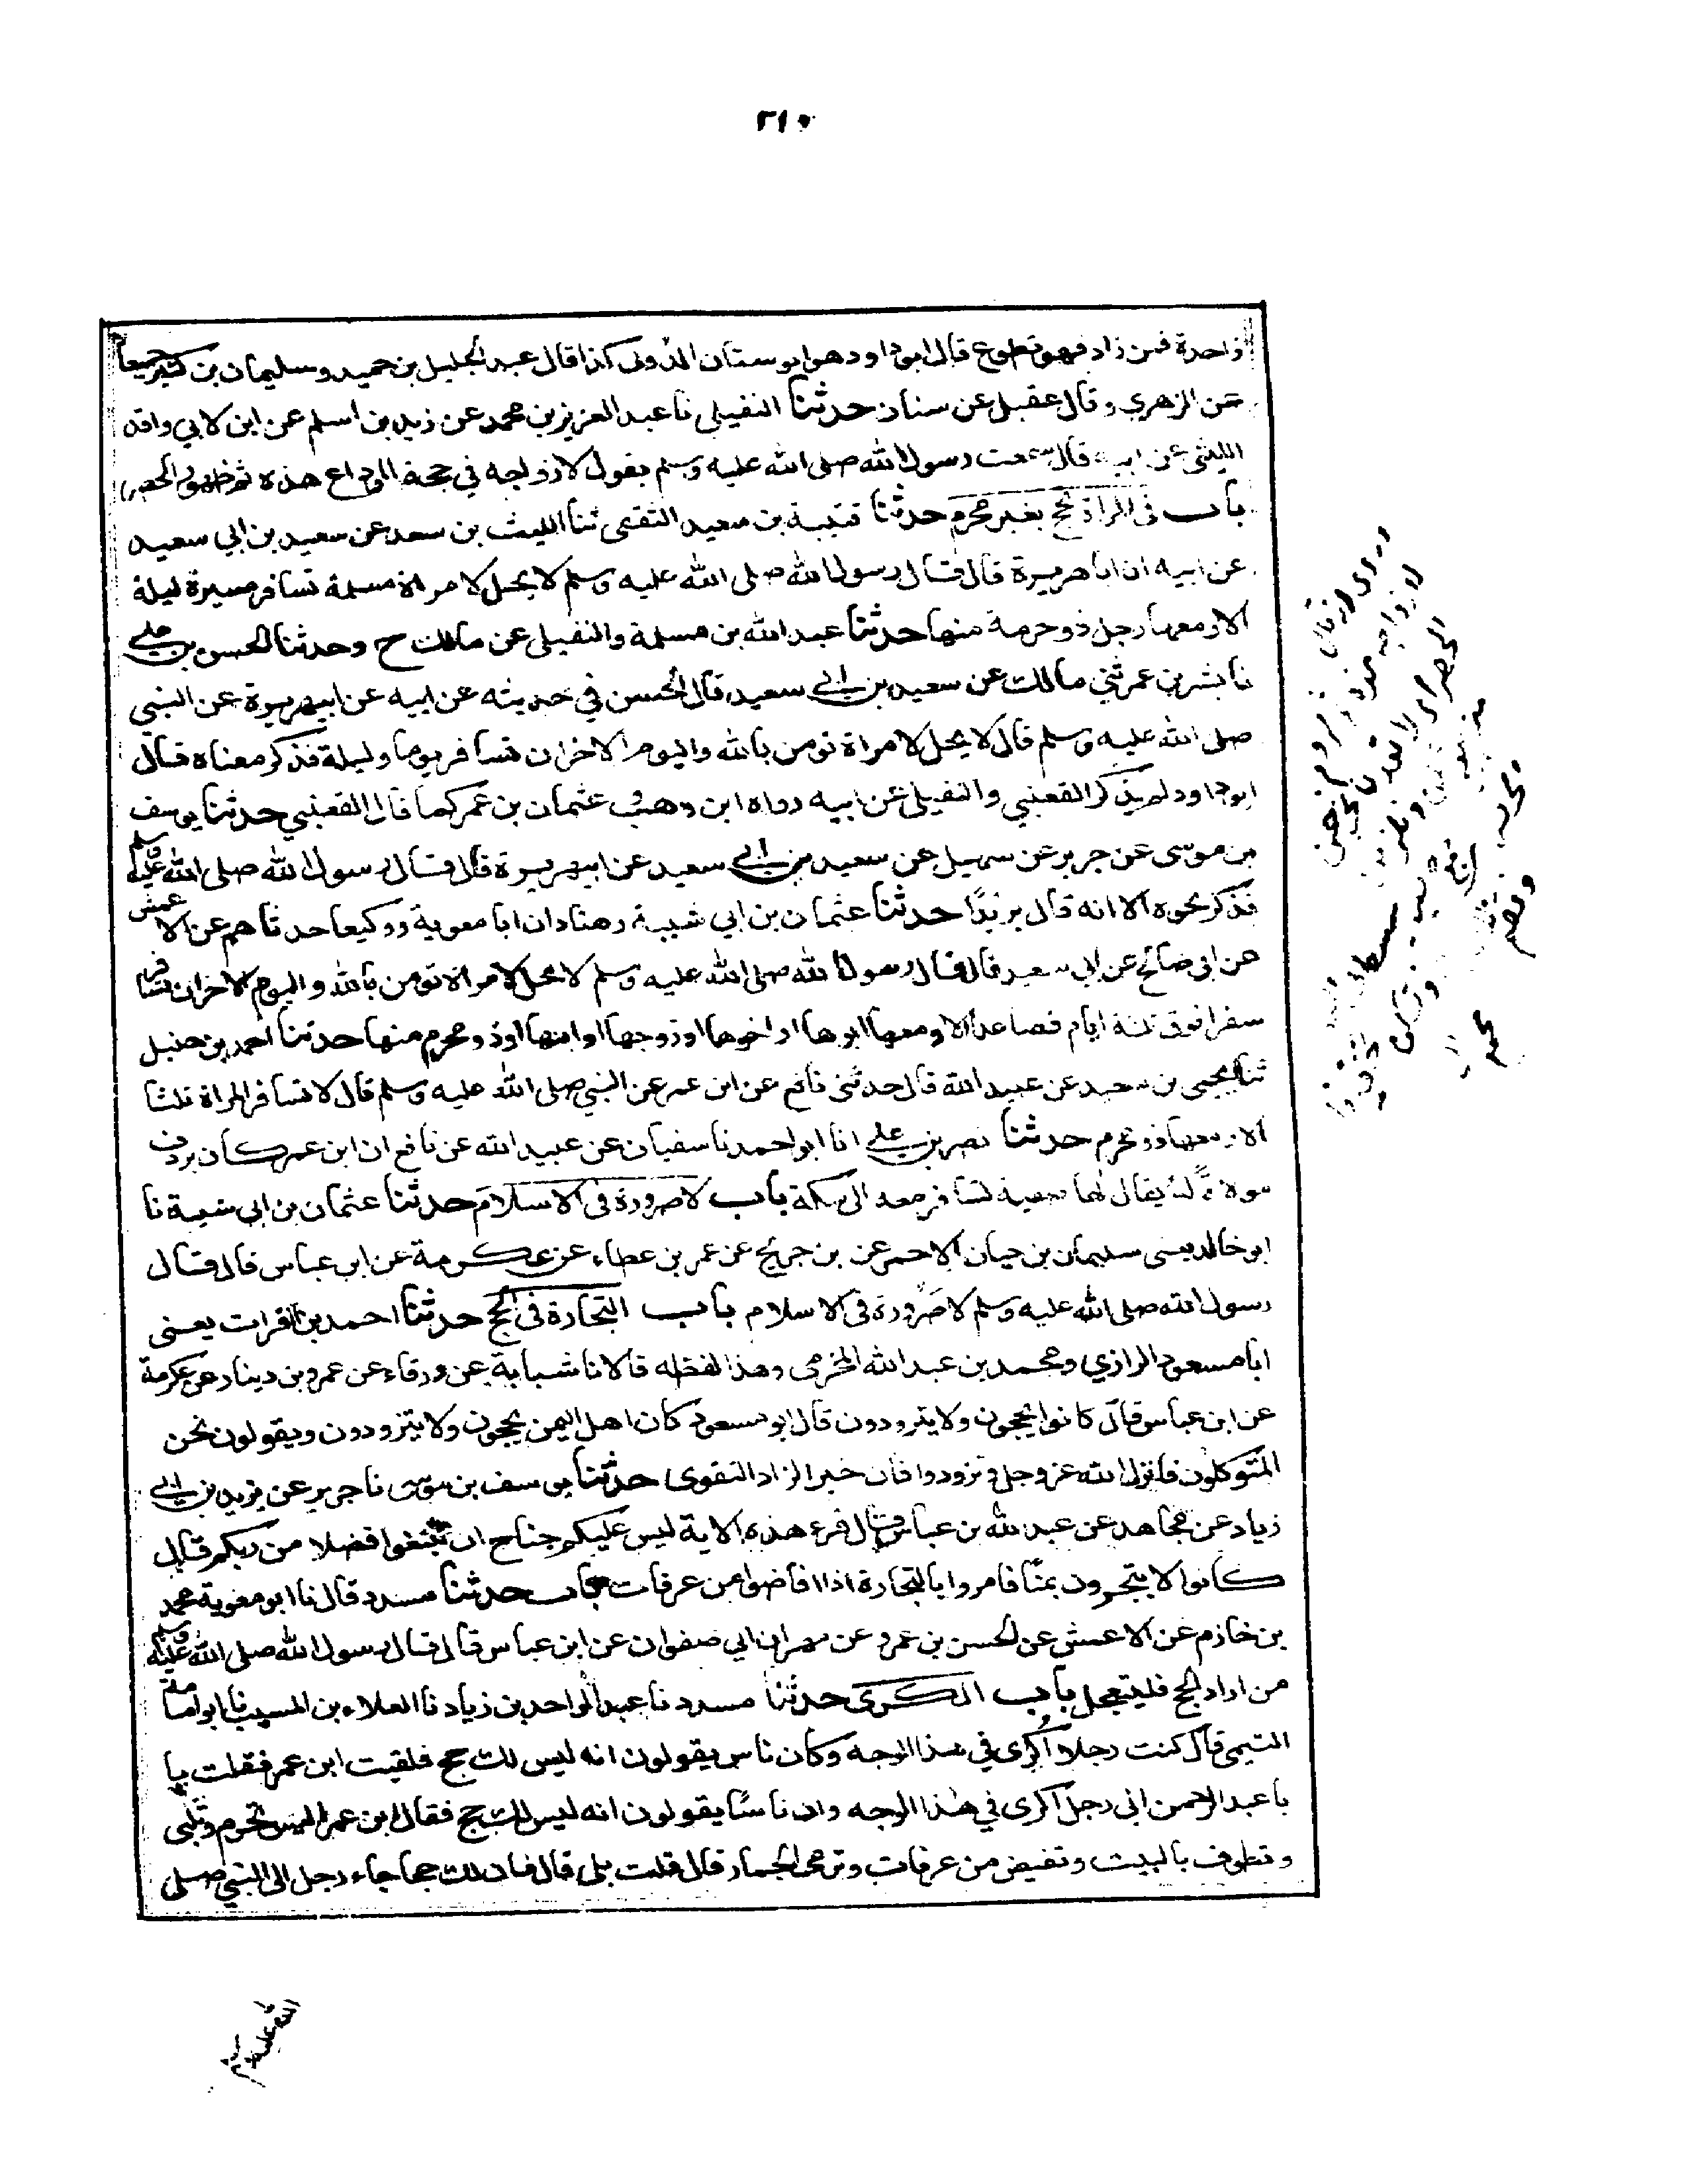 ٢١٠
واحدة فمن زاد فهو تطوع قال ابو داود هو ابو سنان الدؤلى كذا قال عبد الجليل بن حميد وسليمان بن كثير جميعا
عن الزهري وقال عقيل عن سنان حدثنا النفيلى نا عبد العزيز بن محمد عن زيد بن اسلم عن ابن لابي واقد
الليثى عن ابيه قال سمعت رسول الله صلى الله عليه وسلم يقول لازواجه في حجة الوداع هذه ثم ظهور الحصر
باب فى المراة تحج بغير محرم حدثنا قتيبة بن سعيد الثقفى ثنا الليث بن سعد عن سعيد بن ابي سعيد
عن ابيه ان ابا هريرة قال قال رسول الله صلى الله عليه وسلم لا يحل لامراة مسلمة تسافر مسيرة ليلة
الا ومعها رجل ذو حرمة منها حدثنا عبد الله بن مسلمة والنفيلى عن مالك ح وحدثنا الحسن بن على
نا بشر بن عمر ثني مالك عن سعيد بن ابي سعيد قال الحسن في حديثه عن ابيه عن ابي هريرة عن النبي
صلى الله عليه وسلم قال لا يحل لامراة تومن بالله واليوم الاخر ان تسافر يوما وليلة فذكر معناه قال
ابو داود لم يذكر القعنبي والنفيلى عن ابيه رواه ابن وهب وعثمان بن عمر كما قال القعنبي حدثنا يوسف
بن موسى عن جرير عن سهيل عن سعيد بن ابي سعيد عن ابي هريرة قال قال رسول الله صلى الله عليه وسلم
فذكر نحوه الا انه قال بريدا حدثنا عثمان بن ابي شيبة وهناد ان ابا معوية ووكيعا حدثاهم عن الاعمش
عن ابى صالح عن ابي سعيد قال قال رسول الله صلى الله عليه وسلم لا يحل لامراة تومن بالله واليوم الاخر ان تسافر
سفرا فوق ثلثة ايام فصاعدا الا ومعها ابوها او اخوها او زوجها او ابنها او ذو محرم منها حدثنا احمد بن حنبل
ثنا يحيى بن سعيد عن عبيد الله قال حدثنى نافع عن ابن عمر عن النبي صلى الله عليه وسلم قال لا تسافر المراة ثلثا
الا ومعها ذو محرم حدثنا نصر بن على انا ابو احمد نا سفيان عن عبيد الله عن نافع ان ابن عمر كان يردف
مولاة له يقال لها صفية تسافر معه الى مكة باب لا صرورة فى الاسلام حدثنا عثمان بن ابي شيبة نا
ابو خالد يعنى سليمان بن حيان الاحمر عن بن جريج عن عمر بن عطاء عن عكرمة عن ابن عباس قال قال
رسول الله صلى الله عليه وسلم لا صرورة فى الاسلام باب التجارة فى الحج حدثنا احمد بن الفرات يعنى
ابا مسعود الرازي ومحمد بن عبد الله المخرمى وهذا لفظه قالا نا شبابة عن ورقاء عن عمرو بن دينار عن عكرمة
عن ابن عباس قال كانوا يحجون ولا يتزودون قال ابو مسعود كان اهل اليمن يحجون ولا يتزودون ويقولون نحن
المتوكلون فانزل الله عز وجل وتزودوا فان خير الزاد التقوى حدثنا يوسف بن موسى نا جرير عن يزيد بن ابي
زياد عن مجاهد عن عبد الله بن عباس قال قرء هذه الاية ليس عليكم جناح ان تبتغوا فضلا من ربكم قال
كانوا لا يتجرون بمنا فامروا بالتجارة اذا افاضوا من عرفات باب حدثنا مسدد قال نا ابو معوية محمد
بن خازم عن الاعمش عن الحسن بن عمرو عن مهران ابي صفوان عن ابن عباس قال قال رسول الله صلى الله عليه وسلم
من اراد الحج فليتعجل باب الكرى حدثنا مسدد نا عبد الواحد بن زياد نا العلاء بن المسيب نا ابو امامة
التيمى قال كنت رجلا اكرى في هذا الوجه وكان ناس يقولون انه ليس لك حج فلقيت ابن عمر فقلت يا
با عبد الرحمن انى رجل اكرى في هذا الوجه وان ناسا يقولون انه ليس لك حج فقال ابن عمر اليس تحرم وتلبى
وتطوف بالبيت وتفيض من عرفات وترمى الجمار قال قلت بلى قال فان لك حجا جاء رجل الى النبي صلى
الله عليه